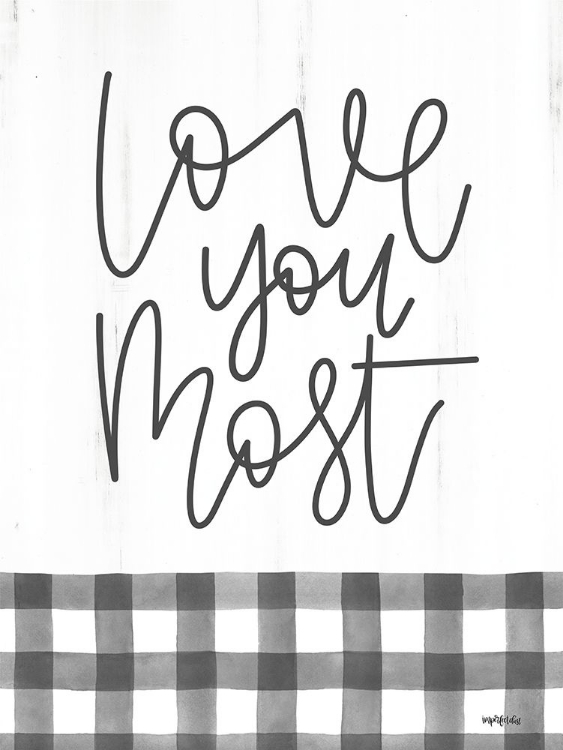 love
you
Most
imperfectdust